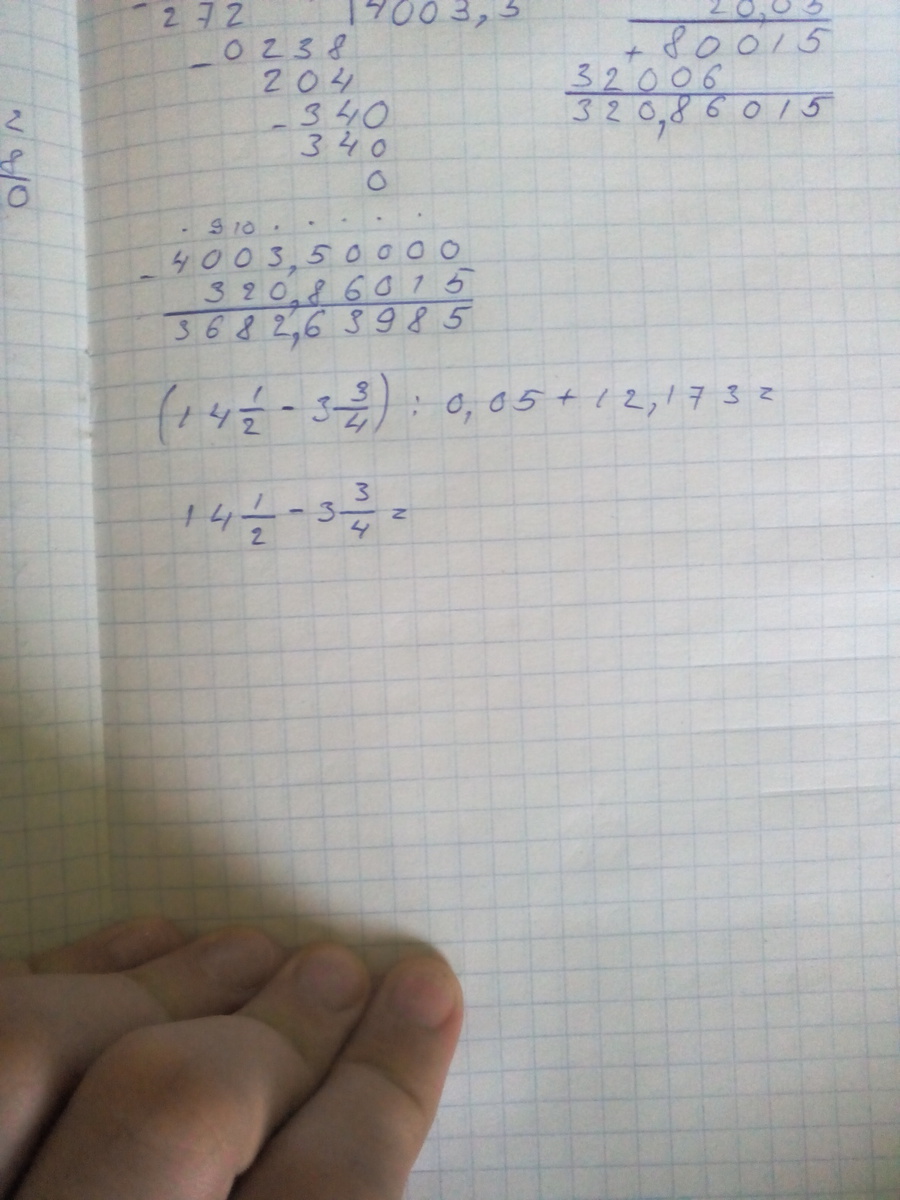 - 272 4003,5
- 0238
204
- 340
340
0
20,05
+ 80015
32006
320,86015
2
8
0
. 9 10 . . . . .
- 4003,50000
320,86015
3682,63985
(14 1/2 - 3 3/4) : 0,05 + 12,173 =
14 1/2 - 3 3/4 =